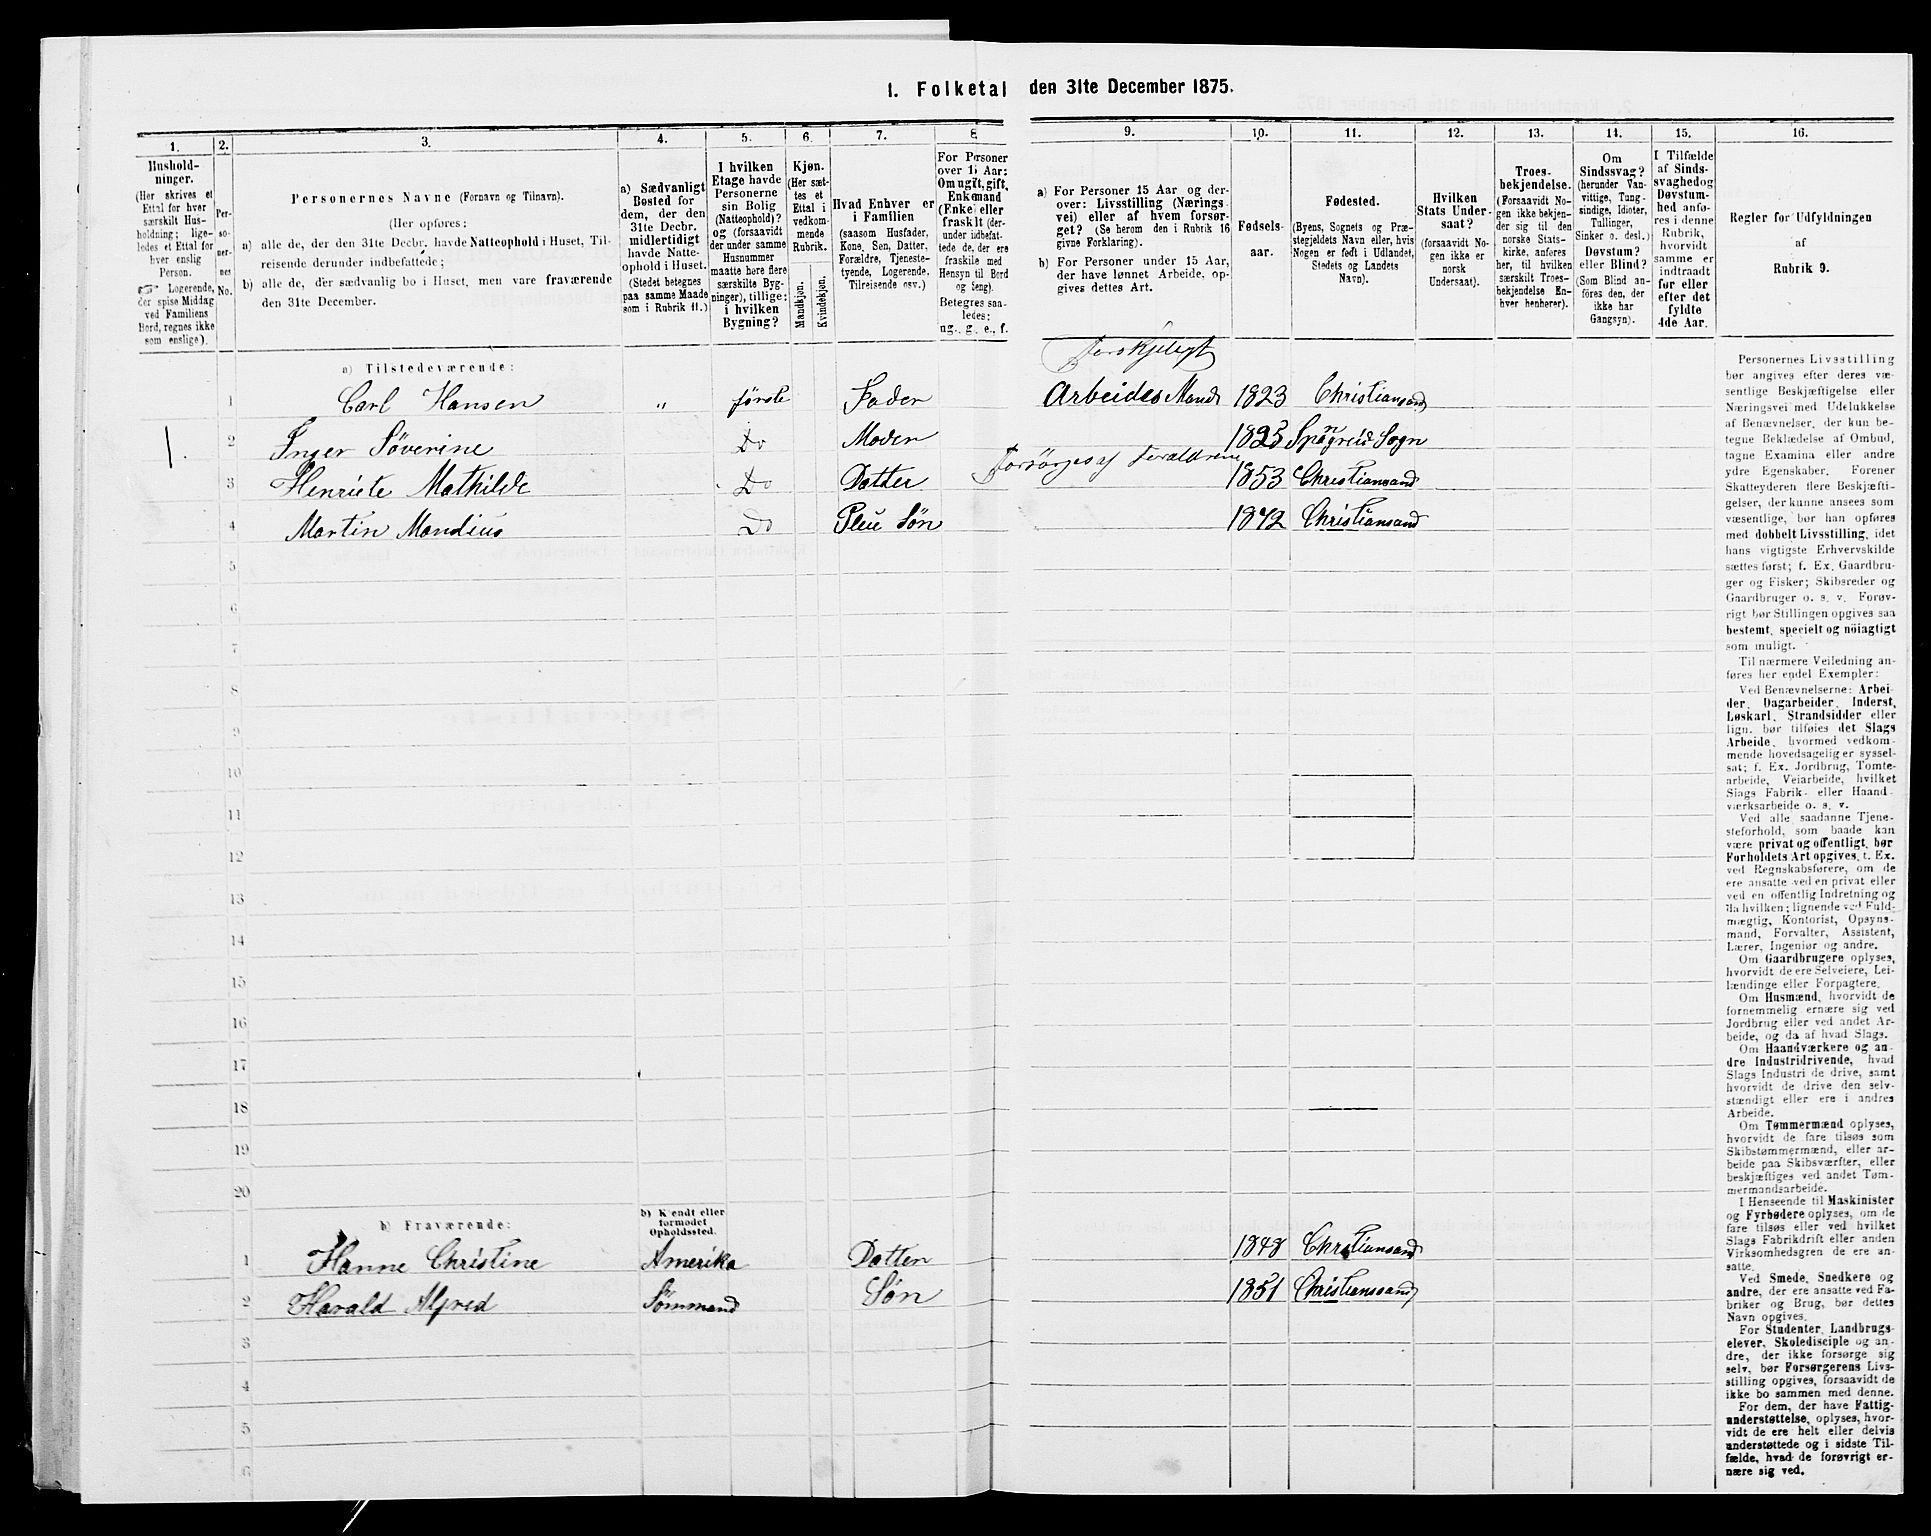 1. Folketal den 31te December 1875.
1.
Hushold-
ninger.
(Her skrives et
Ettal for hver
særskilt Hus-
holdning; lige-
ledes et Ettal for
hver enslig
Person.
Logerende,
der spise Middag
ved Familiens
Bord, regnes ikke
som enslige).
2.
Per-
so-
ner-
nes
No.
3.
Personernes Navne (Fornavn og Tilnavn).
(Her opføres:
a) alle de, der den 31te Decbr. havde Natteophold i Huset, Til-
reisende derunder indbefattede;
b) alle de, der sædvanlig bo i Huset, men vare fraværende
den 31te December.
4.
a) Sædvanligt
Bosted for
dem, der den
31te Decbr.
midlertidigt
havde Natte-
ophold i Huset.
(Stedet betegnes
paa samme Maade
som i Rubrik 11.)
5.
I hvilken
Etage havde
Personerne
sin Bolig
(Natteophold)?
og (forsaavidt
der under samme
Husnummer
maatte høre flere
særskilte Byg-
ninger), tillige:
i hvilken
Bygning?
6.
Kjøn.
(Her sæt-
tes et
Ettal i
vedkom-
mende
Rubrik.
Mandkjøn.
Kvindekjøn.
7.
Hvad Enhver er
i Familien
(saasom Husfader,
Kone, Søn, Datter,
Forældre, Tjeneste-
tyende, Logerende,
Tilreisende osv.)
8
For Personer
over 15 Aar:
Om ugift, gift,
Enkemand
(Enke) eller
fraskilt (der-
under indbefat-
tede de, der ere
fraskilte med
Hensyn til Bord
og Seng).
Betegres saa-
ledes:
ug., g., e., f.
9.
a) For Personer 15 Aar og der-
over: Livsstilling (Nærings-
vei) eller af hvem forsør-
get? (Se herom den i Rubrik 16
givne Forklaring).
b) For Personer under 15 Aar,
der have lønnet Arbeide, op-
gives dettes Art.
10.
Fødsels-
aar.
11.
Fødested.
(Byens, Sognets og Præ-
stegjeldets Navn eller, hvis
Nogen er født i Udlandet,
Stedets og Landets
Navn).
12.
Hvilken
Stats Under-
saat?
(forsaavidt No-
gen ikke er
norsk
Undersaat).
13.
Troes-
bekjendelse.
(Forsaavidt No-
gen ikke bekjen-
der sig til den
norske Stats-
kirke, anføres
her, til hvilken
særskilt Troes-
bekjendelse En-
hver henhører).
14.
Om
Sindssvag?
(herunder Van-
vittige, Tung-
sindige, Idioter,
Tullinger,
Sinker o. desl.)
Døvstum?
eller Blind?
(Som Blind an-
føres den, der
ikke har
Gangsyn).
15.
I Tilfælde
af Sinds-
svaghed og
Døvstum-
hed anfø-
res i denne
Rubrik,
hvorvidt
samme er
indtraadt
før eller
efter det
fyldte
4de Aar.
16.
Regler for Udfyldningen
af
Rubrik 9.
a) Tilstedeværende:
Forskjeligt
1 Carl Hansen „ første Fader Arbeides Mand 1823 Christiansand
1. 2 Inger Søverine Do Moder 1825 Sogn
3 Henriete Mathilde Do Datter Forsørges af Foraldrene 1853 Christiansand
4 Martin Mandius Do Pleie Søn 1872 Christiansand
5
6
7
8
9
10
11
12
13
14
15
16
17
18
19
20
b) Fraværende:
b) Kjendt eller
formodet
Opholdssted.
1 Hanne Christine Amerika Datter 1848 Christiansand
2 Harald Alfred Sømmand Søn 1851 Christianssand
3
4
5
6
Personernes Livsstilling
bør angives efter deres væ-
sentlige Beskjæftigelse eller
Næringsvei med Udelukkelse
af Benævnelser, der kun be-
tegne Beklædelse af Ombud,
tagne Examina eller andre
ydre Egenskaber. Forener
Skatteyderen flere Beskjæfti-
gelser, der kunne ansees som
væsentlige, bør han opføres
med dobbelt Livsstilling, idet
hans vigtigste Erhvervskilde
sættes først; f. Ex. Gaardbru-
ger og Fisker; Skibsreder og
Gaardbruger o. s. v. Forøv-
rigt bør Stillingen opgives saa
bestemt, specielt og nöiagtigt
som muligt.
Til nærmere Veiledning an-
føres her endel Exempler:
Ved Benævnelserne: Arbei-
der, Dagarbeider, Inderst,
Løskarl, Strandsidder eller
lign. bør tilføies det Slags
Arbeide, hvormed vedkom-
mende hovedsagelig er syssel-
sat; f. Ex. Jordbrug, Tomte-
arbeide, Veiarbeide, hvilket
Slags Fabrik- eller Haand-
værksarbeide o. s. v.
Ved alle saadanne Tjene-
steforhold, som baade kan
være privat og offentligt, bør
Forholdets Art opgives, t. Ex.
ved Regnskabsførere, om de
ere ansatte ved en privat eller
ved en offentlig Indretning og
da hvilken; lignende ved Fuld-
mægtig, Kontorist, Opsyns-
mand, Forvalter, Assistent,
Lærer, Ingeniør og andre.
Om Gaardbrugere oplyses,
hvorvidt de ere Selveiere, Lei-
lændinge eller Forpagtere.
Om Husmænd, hvorvidt de
fornemmelig ernære sig ved
Jordbrug eller ved andet Ar-
beide, og da af hvad Slags.
Om Haandværkere og an-
dre Industridrivende, hvad
Slags Industri de drive, samt
hvorvidt de drive den selv-
stændigt eller ere i andres
Arbeide.
Om Tømmermænd oplyses,
hvorvidt de fare tilsøs som
Skibstømmermænd, eller ar-
beide paa Skibsværfter, eller
beskjæftiges ved andet Tøm-
mermandsarbeide.
I Henseende til Maskinister
og Fyrbødere oplyses, om de
fare tilsøs eller ved hvilket
Slags Fabrikdrift eller anden
Virksomhedsgren de ere an-
satte.
Ved Smede, Snedkere og
andre, der ere ansatte ved Fa-
briker og Brug, bør dettes
Navn opgives.
For Studenter, Landbrugs-
elever, Skoledisciple og an-
dre, der ikke forsørge sig
selv, bør Forsørgerens Livs-
stilling opgives, forsaavidt de
ikke bo sammen med denne.
For dem, der have Fattig-
understøttelse, oplyses, hvor-
vidt de ere helt eller delvis
understøttede og i sidste Til-
fælde, hvad de forøvrigt er-
nære sig ved.